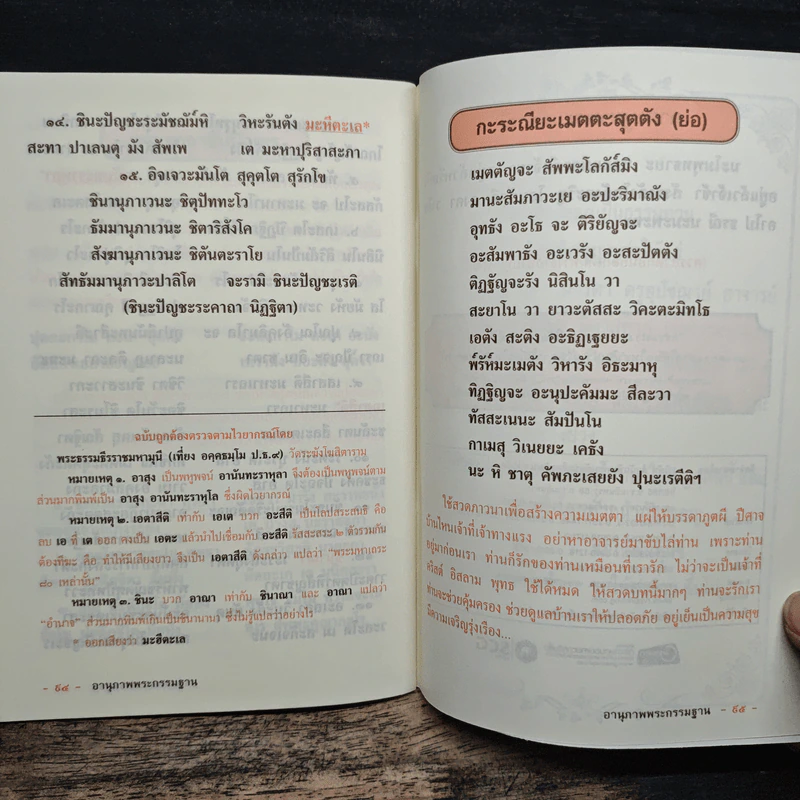 ๑๔. ชินะปัญชะระมัชฌัม์หิ วิหะรันตัง มะหีตะเล*
สะทา ปาเลนตุ มัง สัพเพ เต มะหาปุริสาสะภา
๑๕. อิจเจวะมันโต สุคุตโต สุรักโข
ชินานุภาเวนะ ชิตุปัททะโว
ธัมมานุภาเวนะ ชิตาริสังโค
สังฆานุภาเวนะ ชิตันตะราโย
สัทธัมมานุภาวะปาลิโต จะรามิ ชินะปัญชะเรติ
(ชินะปัญชะระคาถา นิฏฐิตา)
ฉบับถูกต้องตรวจตามไวยากรณ์โดย
พระธรรมธีรราชมหามุนี (เที่ยง อคฺคธมฺโม ป.ธ.๙) วัดระฆังโฆสิตาราม
หมายเหตุ ๑. อาสุง เป็นพหูพจน์ อานันทะราหุลา จึงต้องเป็นพหูพจน์ตาม
ส่วนมากพิมพ์เป็น อาสุง อานันทะราหุโล ซึ่งผิดไวยากรณ์
หมายเหตุ ๒. เอตาสีติ เท่ากับ เอเต บวก อะสีติ เป็นโลปสระสนธิ คือ
ลบ เอ ที่ เต ออก คงเป็น เอตะ แล้วนำไปเชื่อมกับ อะสีติ รัสสะสระ ๒ ตัวรวมกัน
ต้องทีฆะ คือ ทำให้มีเสียงยาว จึงเป็น เอตาสีติ ดังกล่าว แปลว่า "พระมหาเถระ
๘๐ เหล่านั้น"
หมายเหตุ ๓. ชินะ บวก อาณา เท่ากับ ชินาณา และ อาณา แปลว่า
"อำนาจ" ส่วนมากพิมพ์เกินเป็นชินานานา ซึ่งไม่รู้แปลว่าอย่างไร
* ออกเสียงว่า มะฮีตะเล
- ๙๔ - อานุภาพพระกรรมฐาน
กะระณียะเมตตะสุตตัง (ย่อ)
เมตตัญจะ สัพพะโลกัส์มิง
มานะสัมภาวะเย อะปะริมาณัง
อุทธัง อะโธ จะ ติริยัญจะ
อะสัมพาธัง อะเวรัง อะสะปัตตัง
ติฏฐัญจะรัง นิสินโน วา
สะยาโน วา ยาวะตัสสะ วิคะตะมิทโธ
เอตัง สะติง อะธิฏเฐยยะ
พ์รัห์มะเมตัง วิหารัง อิธะมาหุ
ทิฏฐิญจะ อะนุปะคัมมะ สีละวา
ทัสสะเนนะ สัมปันโน
กาเมสุ วิเนยยะ เคธัง
นะ หิ ชาตุ คัพภะเสยยัง ปุนะเรตีติฯ
ใช้สวดภาวนาเพื่อสร้างความเมตตา แผ่ให้บรรดาภูตผี ปีศาจ
บ้านไหนเจ้าที่เจ้าทางแรง อย่าหาอาจารย์มาขับไล่ท่าน เพราะท่าน
อยู่มาก่อนเรา ท่านก็รักของท่านเหมือนที่เรารัก ไม่ว่าจะเป็นเจ้าที่
คริสต์ อิสลาม พุทธ ใช้ได้หมด ให้สวดบทนี้มากๆ ท่านจะรักเรา
ท่านจะช่วยคุ้มครอง ช่วยดูแลบ้านเราให้ปลอดภัย อยู่เย็นเป็นความสุข
มีความเจริญรุ่งเรือง...
อานุภาพพระกรรมฐาน - ๙๕ -